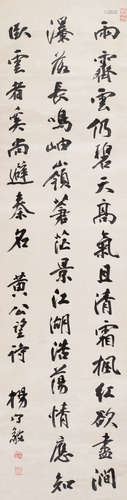 雨霽雲仍碧天高氣且清霜楓紅欲盡澗
瀑落長鳴岫嶺著茫景江湖浩蕩情應知
臥雲者奚尚避秦名 黃公望詩 楊守敬